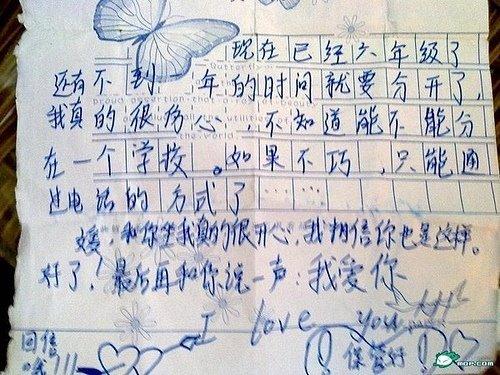 现在已经六年级了
还有不到一年的时间就要分开了,
我真的很伤心,不知道能不能分
在一个学校。如果不巧,只能通
过电话的方式了……
媛,和你坐我真的很开心,我相信你也是这样。
对了!最后再和你说一声:我爱你
I love you
回信
哦!!!
保管好
MOP.COM